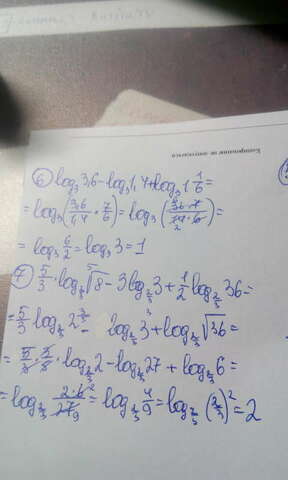 Копирование не допускается
⑥ log₃3,6 - log₃1,4 + log₃1 1/6 =
= log₃(3,6/1,4 · 7/6) = log₃(36·7/14·6) =
= log₃ 6/2 = log₃3 = 1
⑦ 5/3 · log₂/₃ ⁵√8 - 3log₂/₃3 + 1/2 log₂/₃36 =
= 5/3 log₂/₃2^(3/5) - log₂/₃3³ + log₂/₃√36 =
= 5/3 · 3/5 · log₂/₃2 - log₂/₃27 + log₂/₃6 =
= log₂/₃ 2·6/27 = log₂/₃ 4/9 = log₂/₃(2/3)² = 2